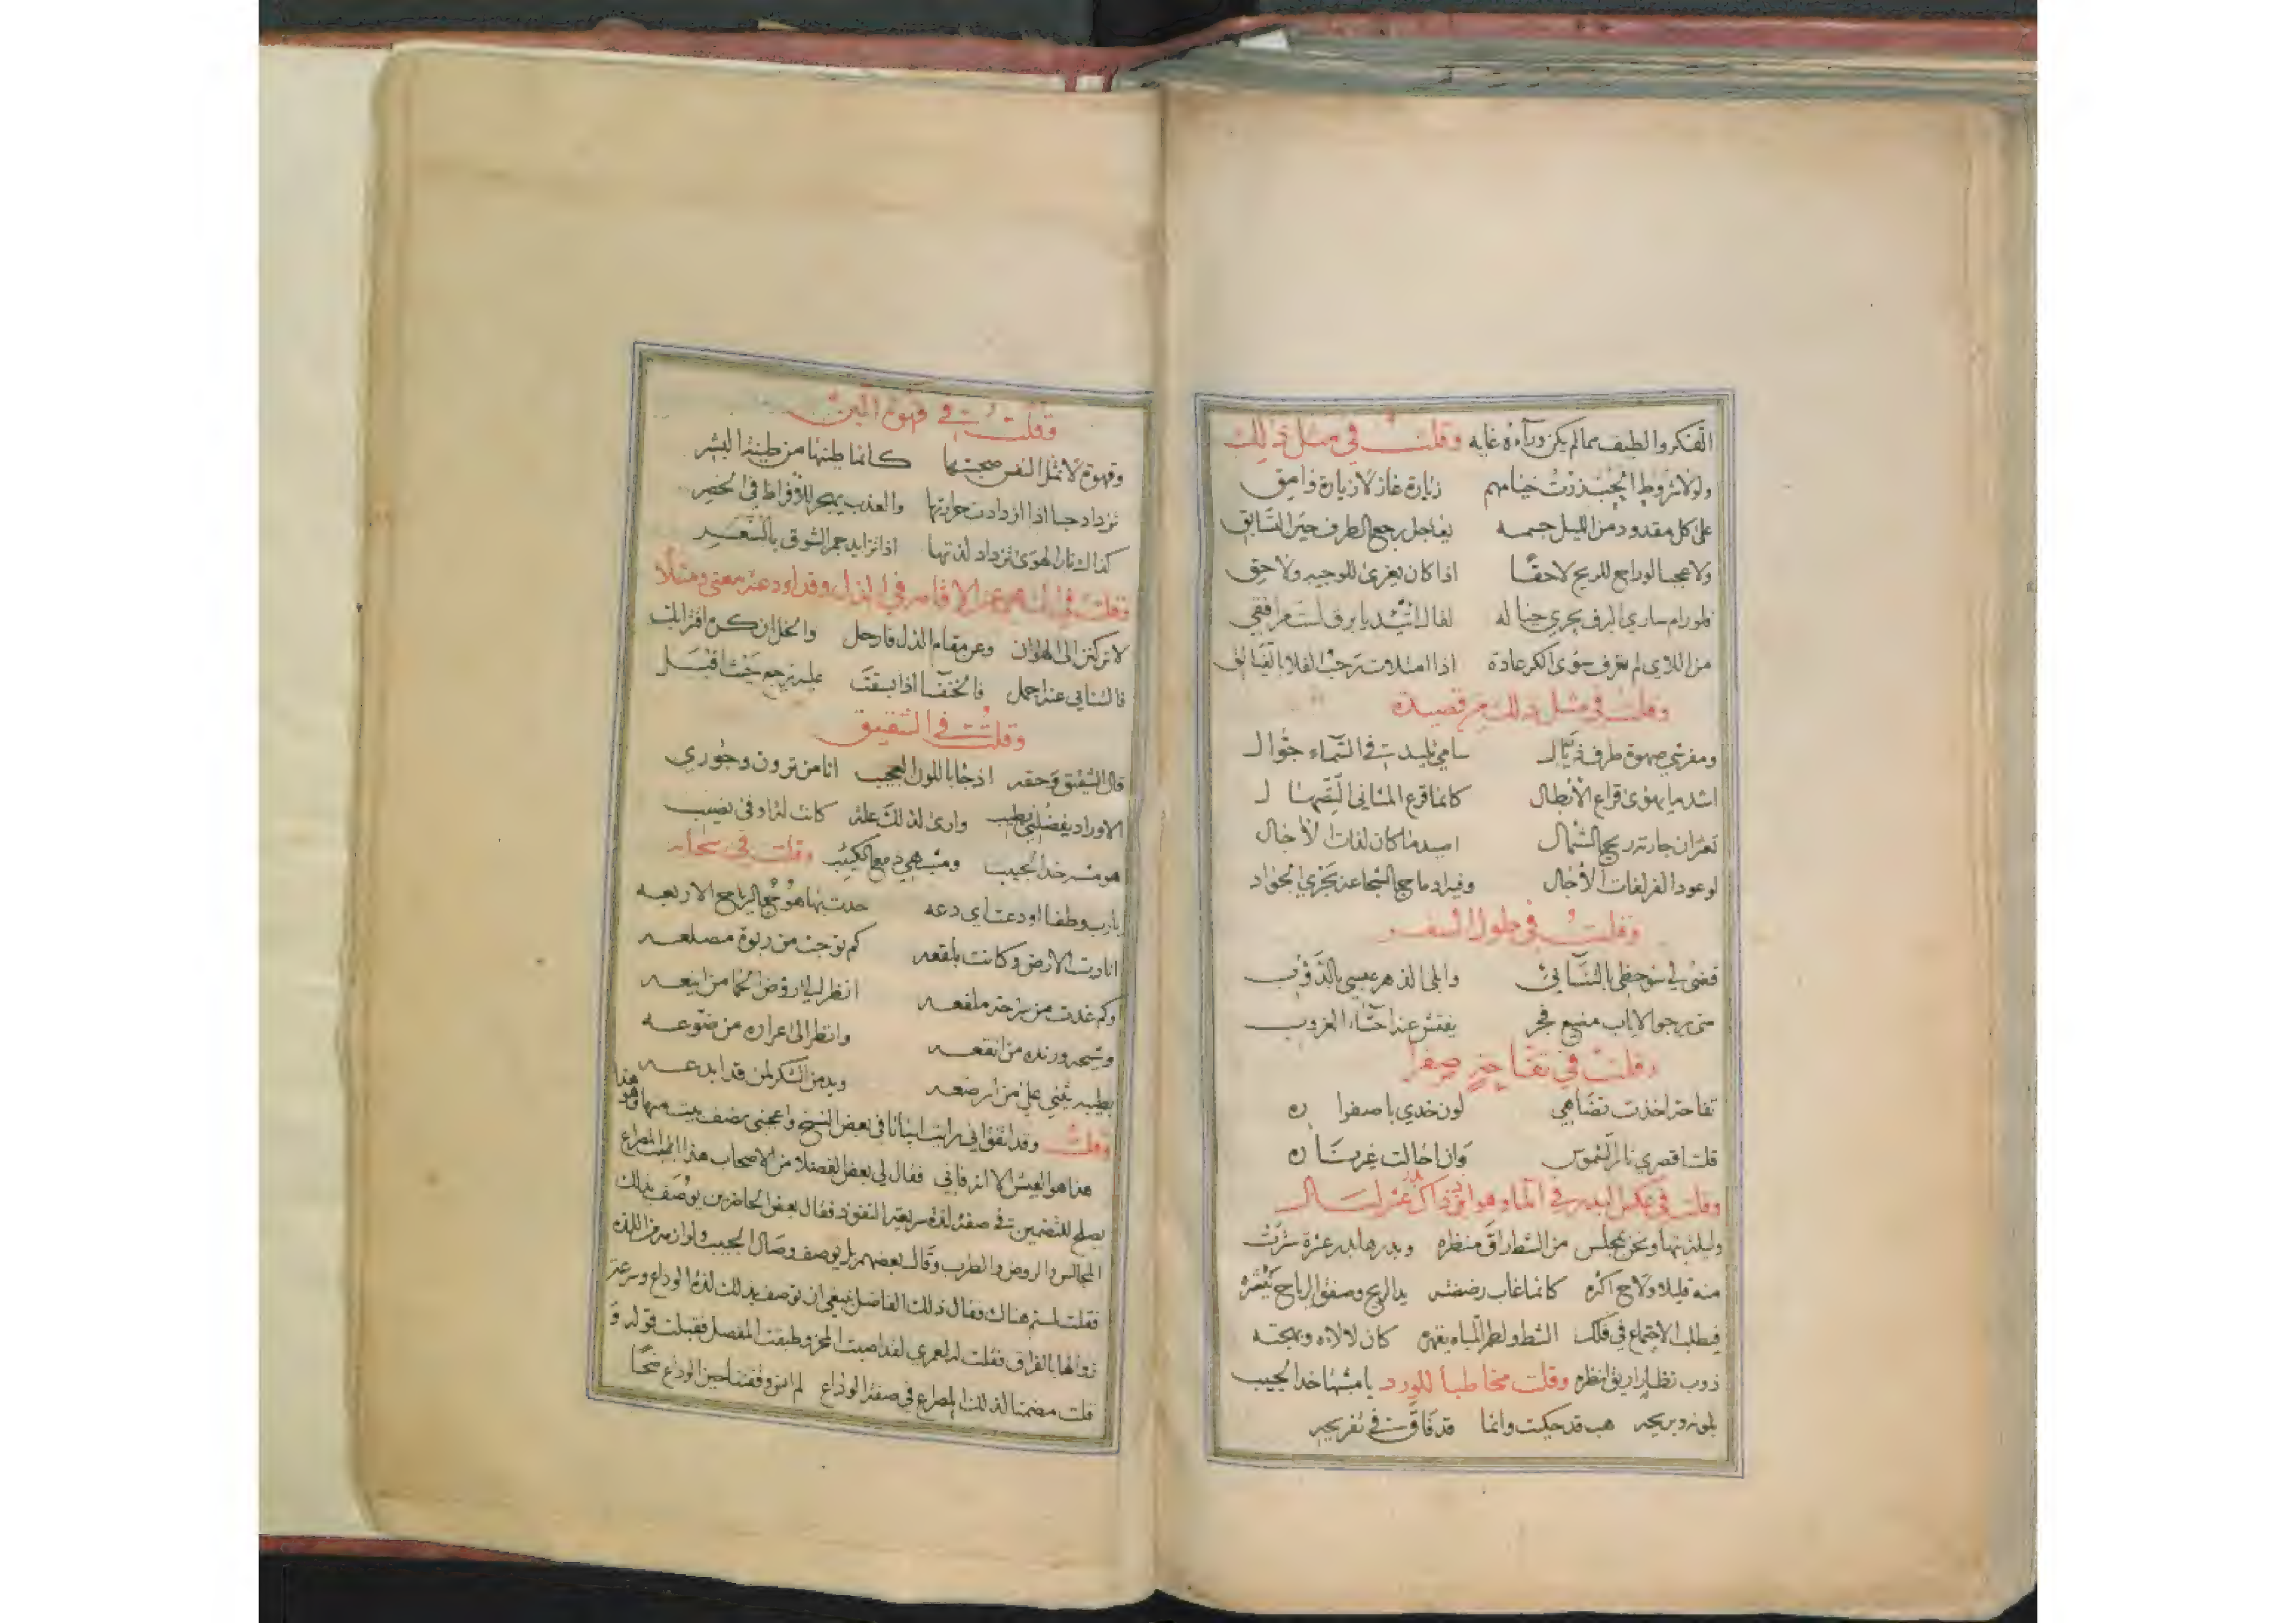 الفكر والطيف مما لم يكن وراءه غايه وقلت في مثل ذلك
ولولا شروط الحب زرت خيامهم زيارة غاز لا زيارة وامق
على كل مقدود من الليل جسمه يفاجل رجع الطرف حين التسابق
ولا عجبا لوراجع للريح لاحقا اذا كان يعزى للوجيه ولاحق
فلو رام ساري البرق يجري حياله لقال اتئد يا برق لست مرافقي
من اللاي لم تعرف سوى الكر عادة اذا امتلات رحب الفلا بالفيالق
وقلت في مثل ذلك من قصيدة
ومفرشي صهوة طرف ذيال سامي تليد في السماء جوال
اشد ما يهوى قراع الابطال كانما قرع المثاني القيها ل
تعثران جارته ريح الشمال اصيد ما كان لفات الاجال
لوعود الفر لفات الاجال وفيه اد ماح الشجاعة تجزي الجواد
وقلت في طول السفر
قضى لي سوء حظي بالتنائي وابلى الدهر عيسي بالدؤب
متى يرجو الاياب مضيع فجر يفتش عنه احشاء الغروب
وقلت في تفاحة صفرا
تفاحة اخذت تضاهي لون خدي باصفرا ره
قلت اقصري نار الشموس وان اخالت غرتا ره
وقلت في عكس البدر في الماء وهو
وليلة بتها ونحن بمجلس من الشط راق منظره وبدرها بدر عزة سترت
منه قليلا ولاح اكثره كانما غاب رضفته يد الريح وصفق الرياح يكثره
فيطلب الاجتماع في فلك الشط ولطم المياه يقهره كان لالاءه وبهجته
ذوب نظار اريق انظره وقلت مخاطبا للورد يا مشبها خد الحبيب
بلونه وبريحه هب قد حكيت وانما قد فاق في تفريحه
وقلت في قهوة البن
وقهوة لا تمل النفس صحبتها كانما طينها من طينة البشر
تزداد حبا اذا ازدادت حرارتها والعذب يهجر للافراط في الخصر
كذاك نار الهوى تزداد لذتها اذا تزايد جمر الشوق بالسعر
وقلت في النهي عن الاقامة في الذل وقد اودعته معنى ومثلا
لا تركنن الى الهوان وعن مقام الذل فارحل والخل ان كره اقترابك
فالتنائي عنه اجمل فالخنفسا اذا بسقت عليه ترجع خنثا قبل
وقلت في الشقيق
قال الشقيق وحقه اذ جا باللون العجيب انا من ترون وجوري
الاوراد يفضلني بطيب وارى لذلك علة كانت له اوفى نصيب
هو مشبه خد الحبيب ومشبهي دمع الكئيب وقلت في سحابه
يارب وطفا اودعت اي دعه حدت بها هوج الرياح الاربعه
انارت الارض وكانت بلقعه كم توجت من ربوة مصلعه
وكم غدت من سرحة ملفعه انظر الى روض الحما من اينعه
وشيحه ورنده من انقعه وانظر الى عراره من ضوعه
بطيبه يثني على من ارضعه ويد من الشكر لمن قد ابدعه
وقلت وقد اتفق اني رايت ابياتا في بعض النسخ واعجبني نصف بيت منها وهو هذا
هذا هو العيش الا انه فاني فقال لي بعض الفضلا من الاصحاب هذا المصراع
يصلح للتضمين في صفة لذة سريعة النفوذ فقال بعض الحاضرين يوصف بذلك
المجالس والروض والطرب وقال بعضهم بل يوصف وصال الحبيب ولوازمه من اللذه
فقلت لستم هناك فقال ذلك الفاضل ينبغي ان توصف بذلك لذة الوداع وسرعة
زوالها بالفراق فقلت له لعمري لقد اصبت المحز وطبقت المفصل فقبلت قوله و
قلت مضمنا لذلك المصراع في صفة الوداع لم انس وقفتنا حين الوداع ضحا